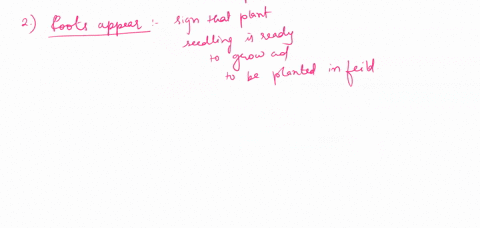 2.) Roots appear :- sign that plant
seedling is ready
to grow and
to be planted in feild